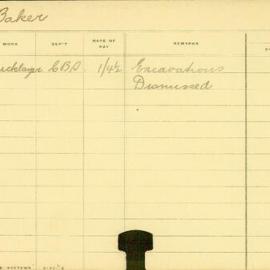 Baker
WORK DEP'T RATE OF PAY REMARKS
ricklayer C.B.D. 1/4½ Excavations
Dismissed